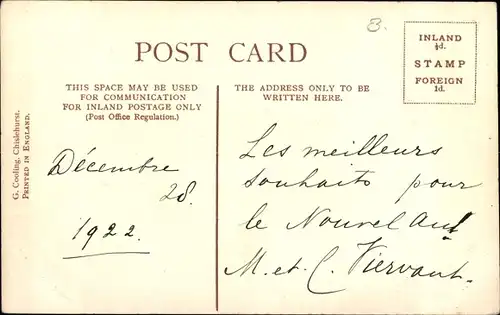 B.
POST CARD
INLAND
½d.
STAMP
FOREIGN
1d.
THIS SPACE MAY BE USED
FOR COMMUNICATION
FOR INLAND POSTAGE ONLY
(Post Office Regulation.)
THE ADDRESS ONLY TO BE
WRITTEN HERE.
G. Cooling, Chislehurst.
PRINTED IN ENGLAND.
Décembre
28.
1922.
Les meilleurs
souhaits pour
le Nouvel An
M. et C. Viervant.